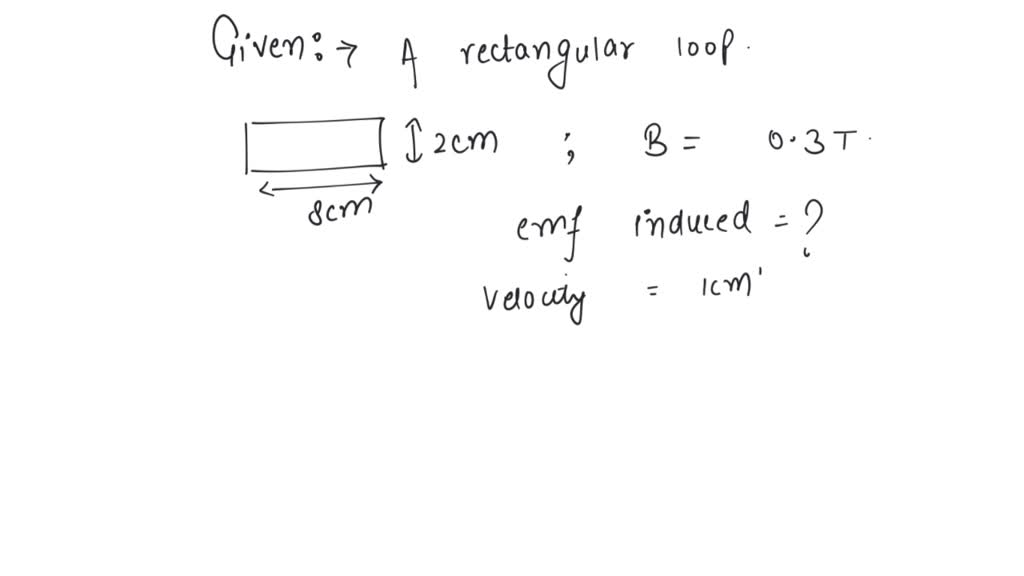 Given:→ A rectangular loop.
2cm ; B = 0.3T.
8cm
emf induced = ?
velocity = 1cm'